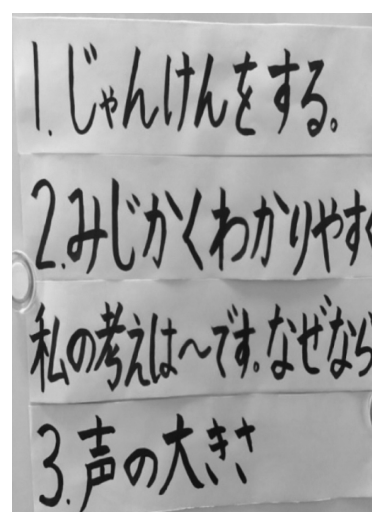 1.じゃんけんをする。
2.みじかくわかりやすく
私の考えは〜です。なぜなら
3.声の大きさ